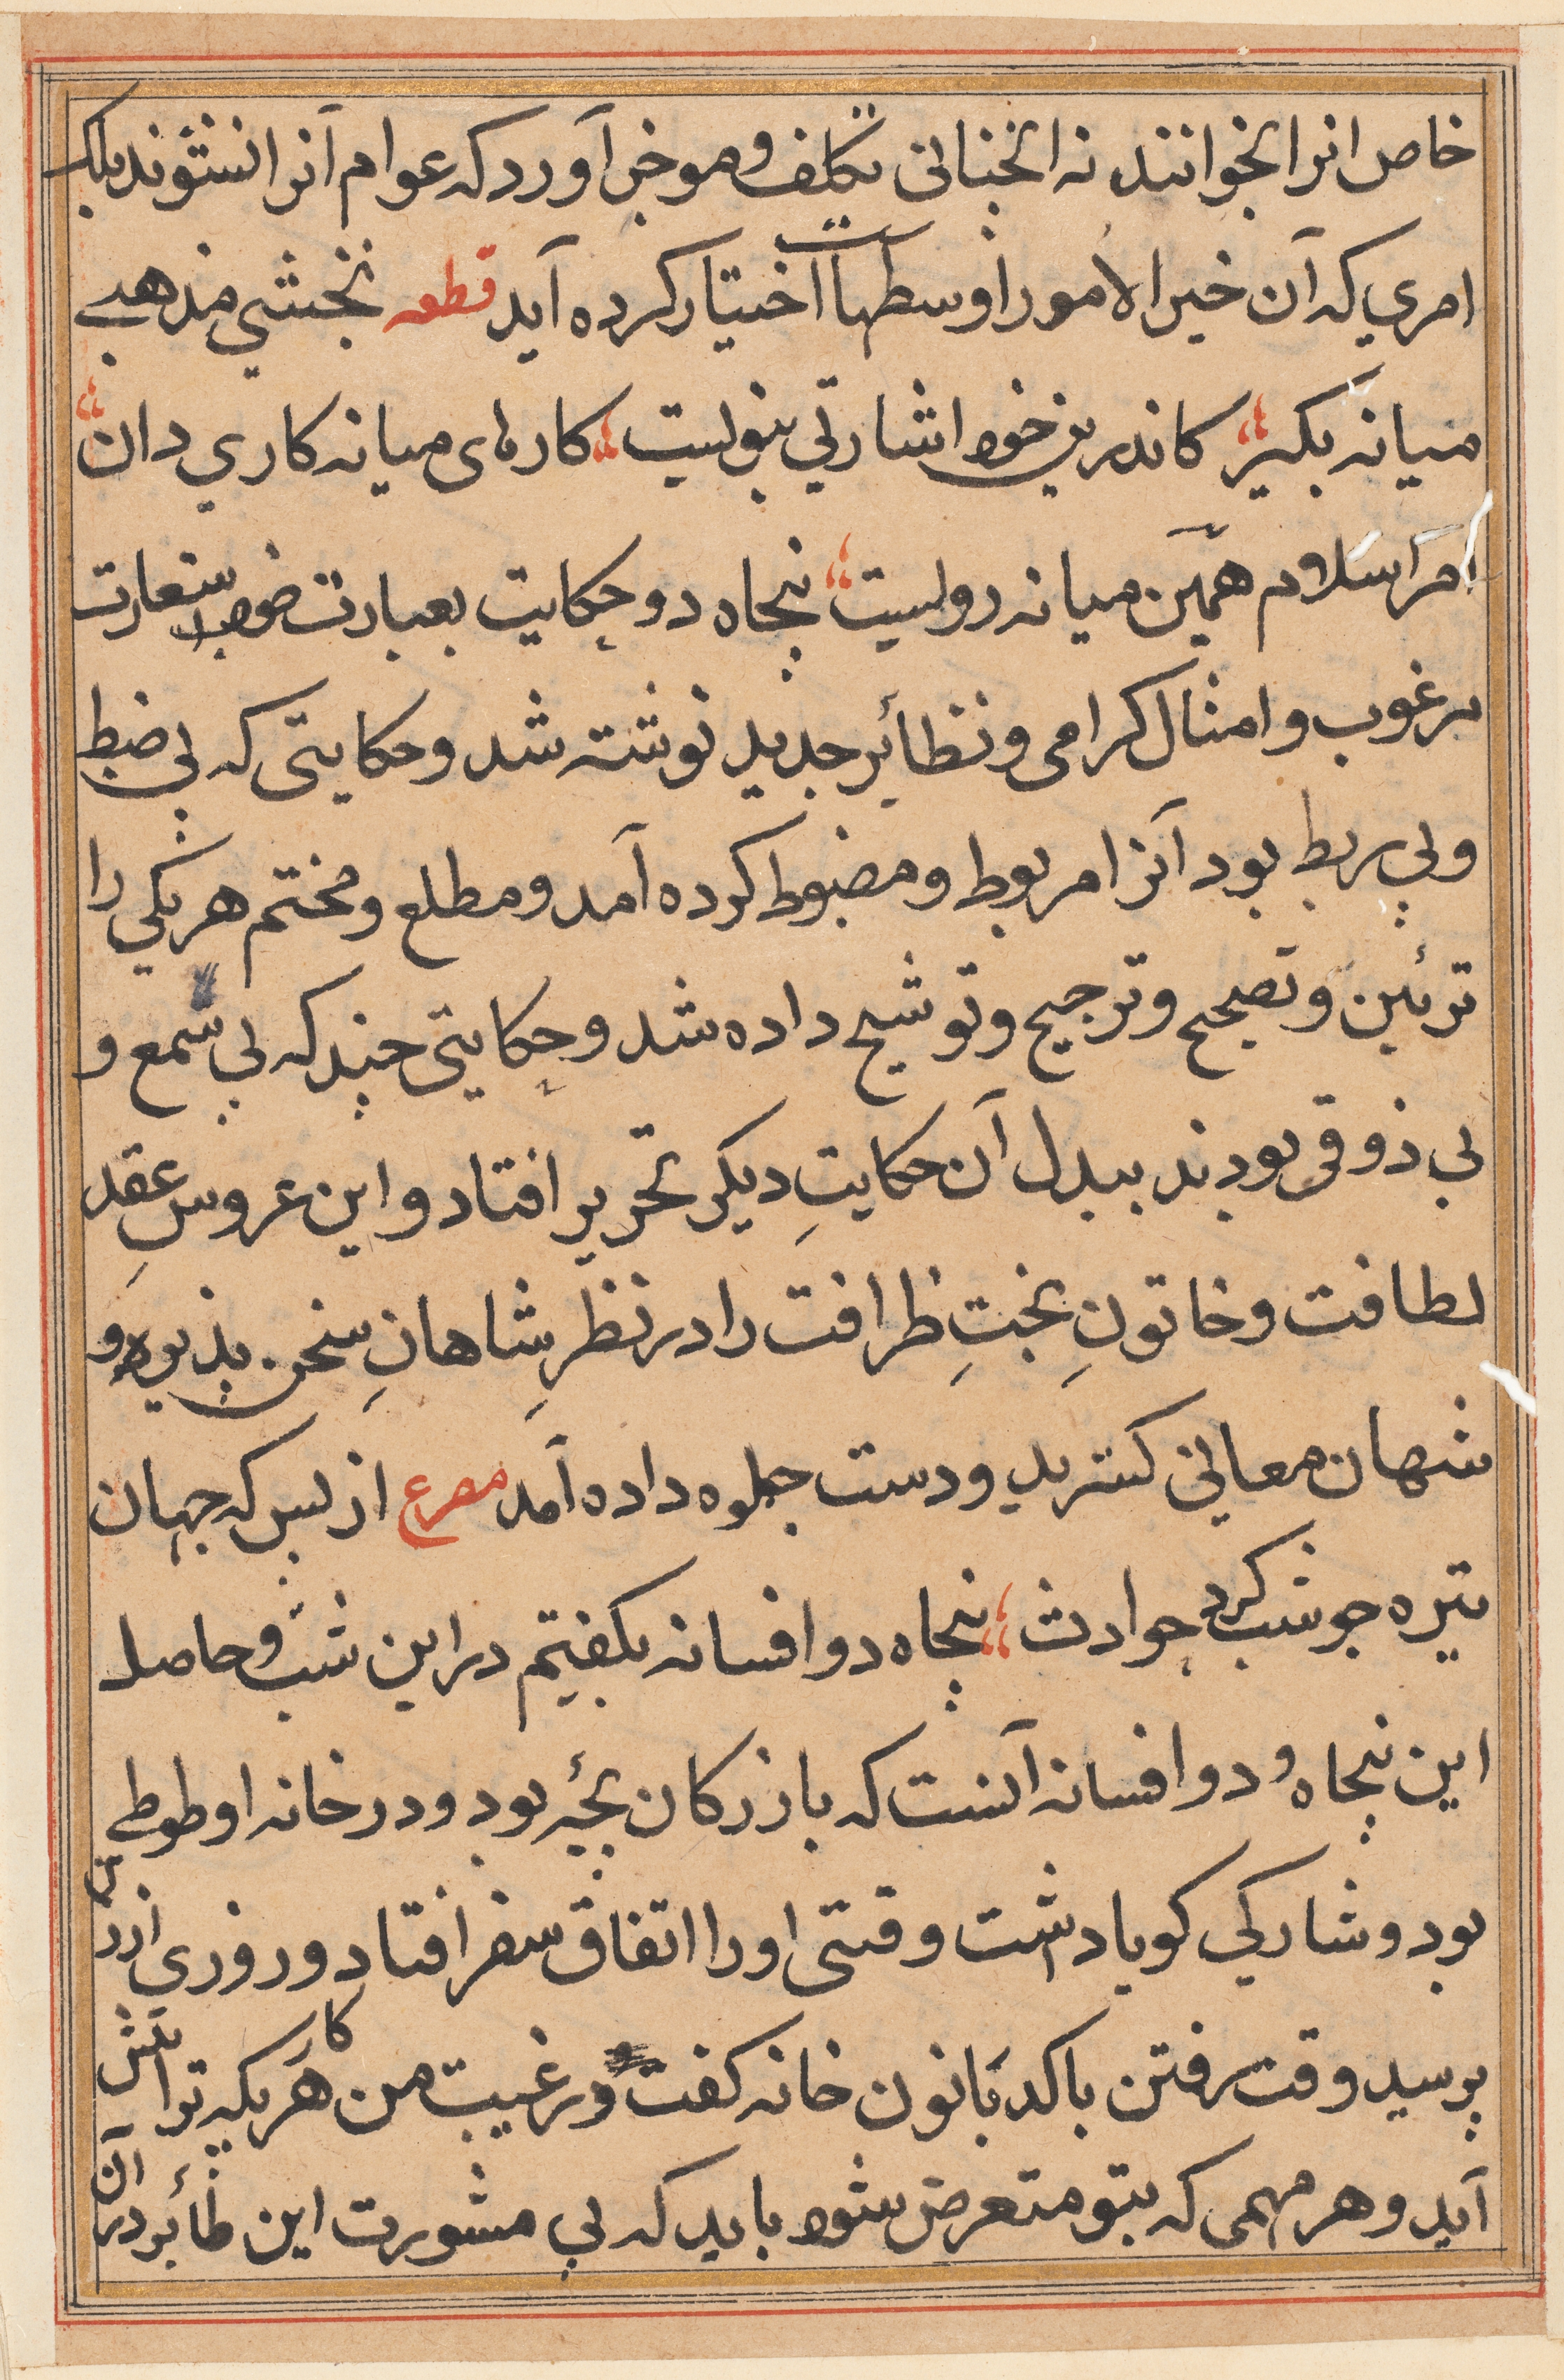 خاص انرا بخوانند نه انجنانی تکلف و موخر آورد که عوام آنرا نشنوند بلکه
امري که آن خیر الامور اوسطهاست اختیار کرده آید قطعه نخشبي مذهبے
میانه بکیر کاندرین خود اشارتي نبویست کارهای میانه کاري دان
امر اسلام همین میانه رویست پنجاه دو حکایت بعبارت خوب استعارت
مرغوب و امثال کرامی و نظائر جدید نوشته شد و حکایتی که بي ضبط
وبي ربط بود آنرا مربوط و مضبوط کرده آمد و مطلع و مختم هریکي را
تزئین و تصحیح و ترجیح و توشیح داده شد و حکایتي چند که بي سمع و
بي ذوقی بودند ببدل آن حکایتِ دیکر تحریر افتاد و این عروسِ عقد
لطافت و خاتونِ بختِ ظرافت را در نظرِ شاهانِ سخن پذیرد و
شهان معالي کستر ید و دست جلوه داده آمد مصرع از بس که جهان
تیره جو شب کرد حوادث پنجاه دو افسانه بکفتیم در این شب و حاصل
این پنجاه و دو افسانه آنست که بازرکان بچۀ بود و در خانه او طوطي
بود و شارکي کویا داشت وقتی او را اتفاق سفر افتاد و روزی ازین در
پرسید وقت رفتن با کدبانون خانه کفت در غیبت من هر کاریکه ترا پیش
آید و هر مهمی که بتو متعرض شود باید که بي مشورت این طائر در آن